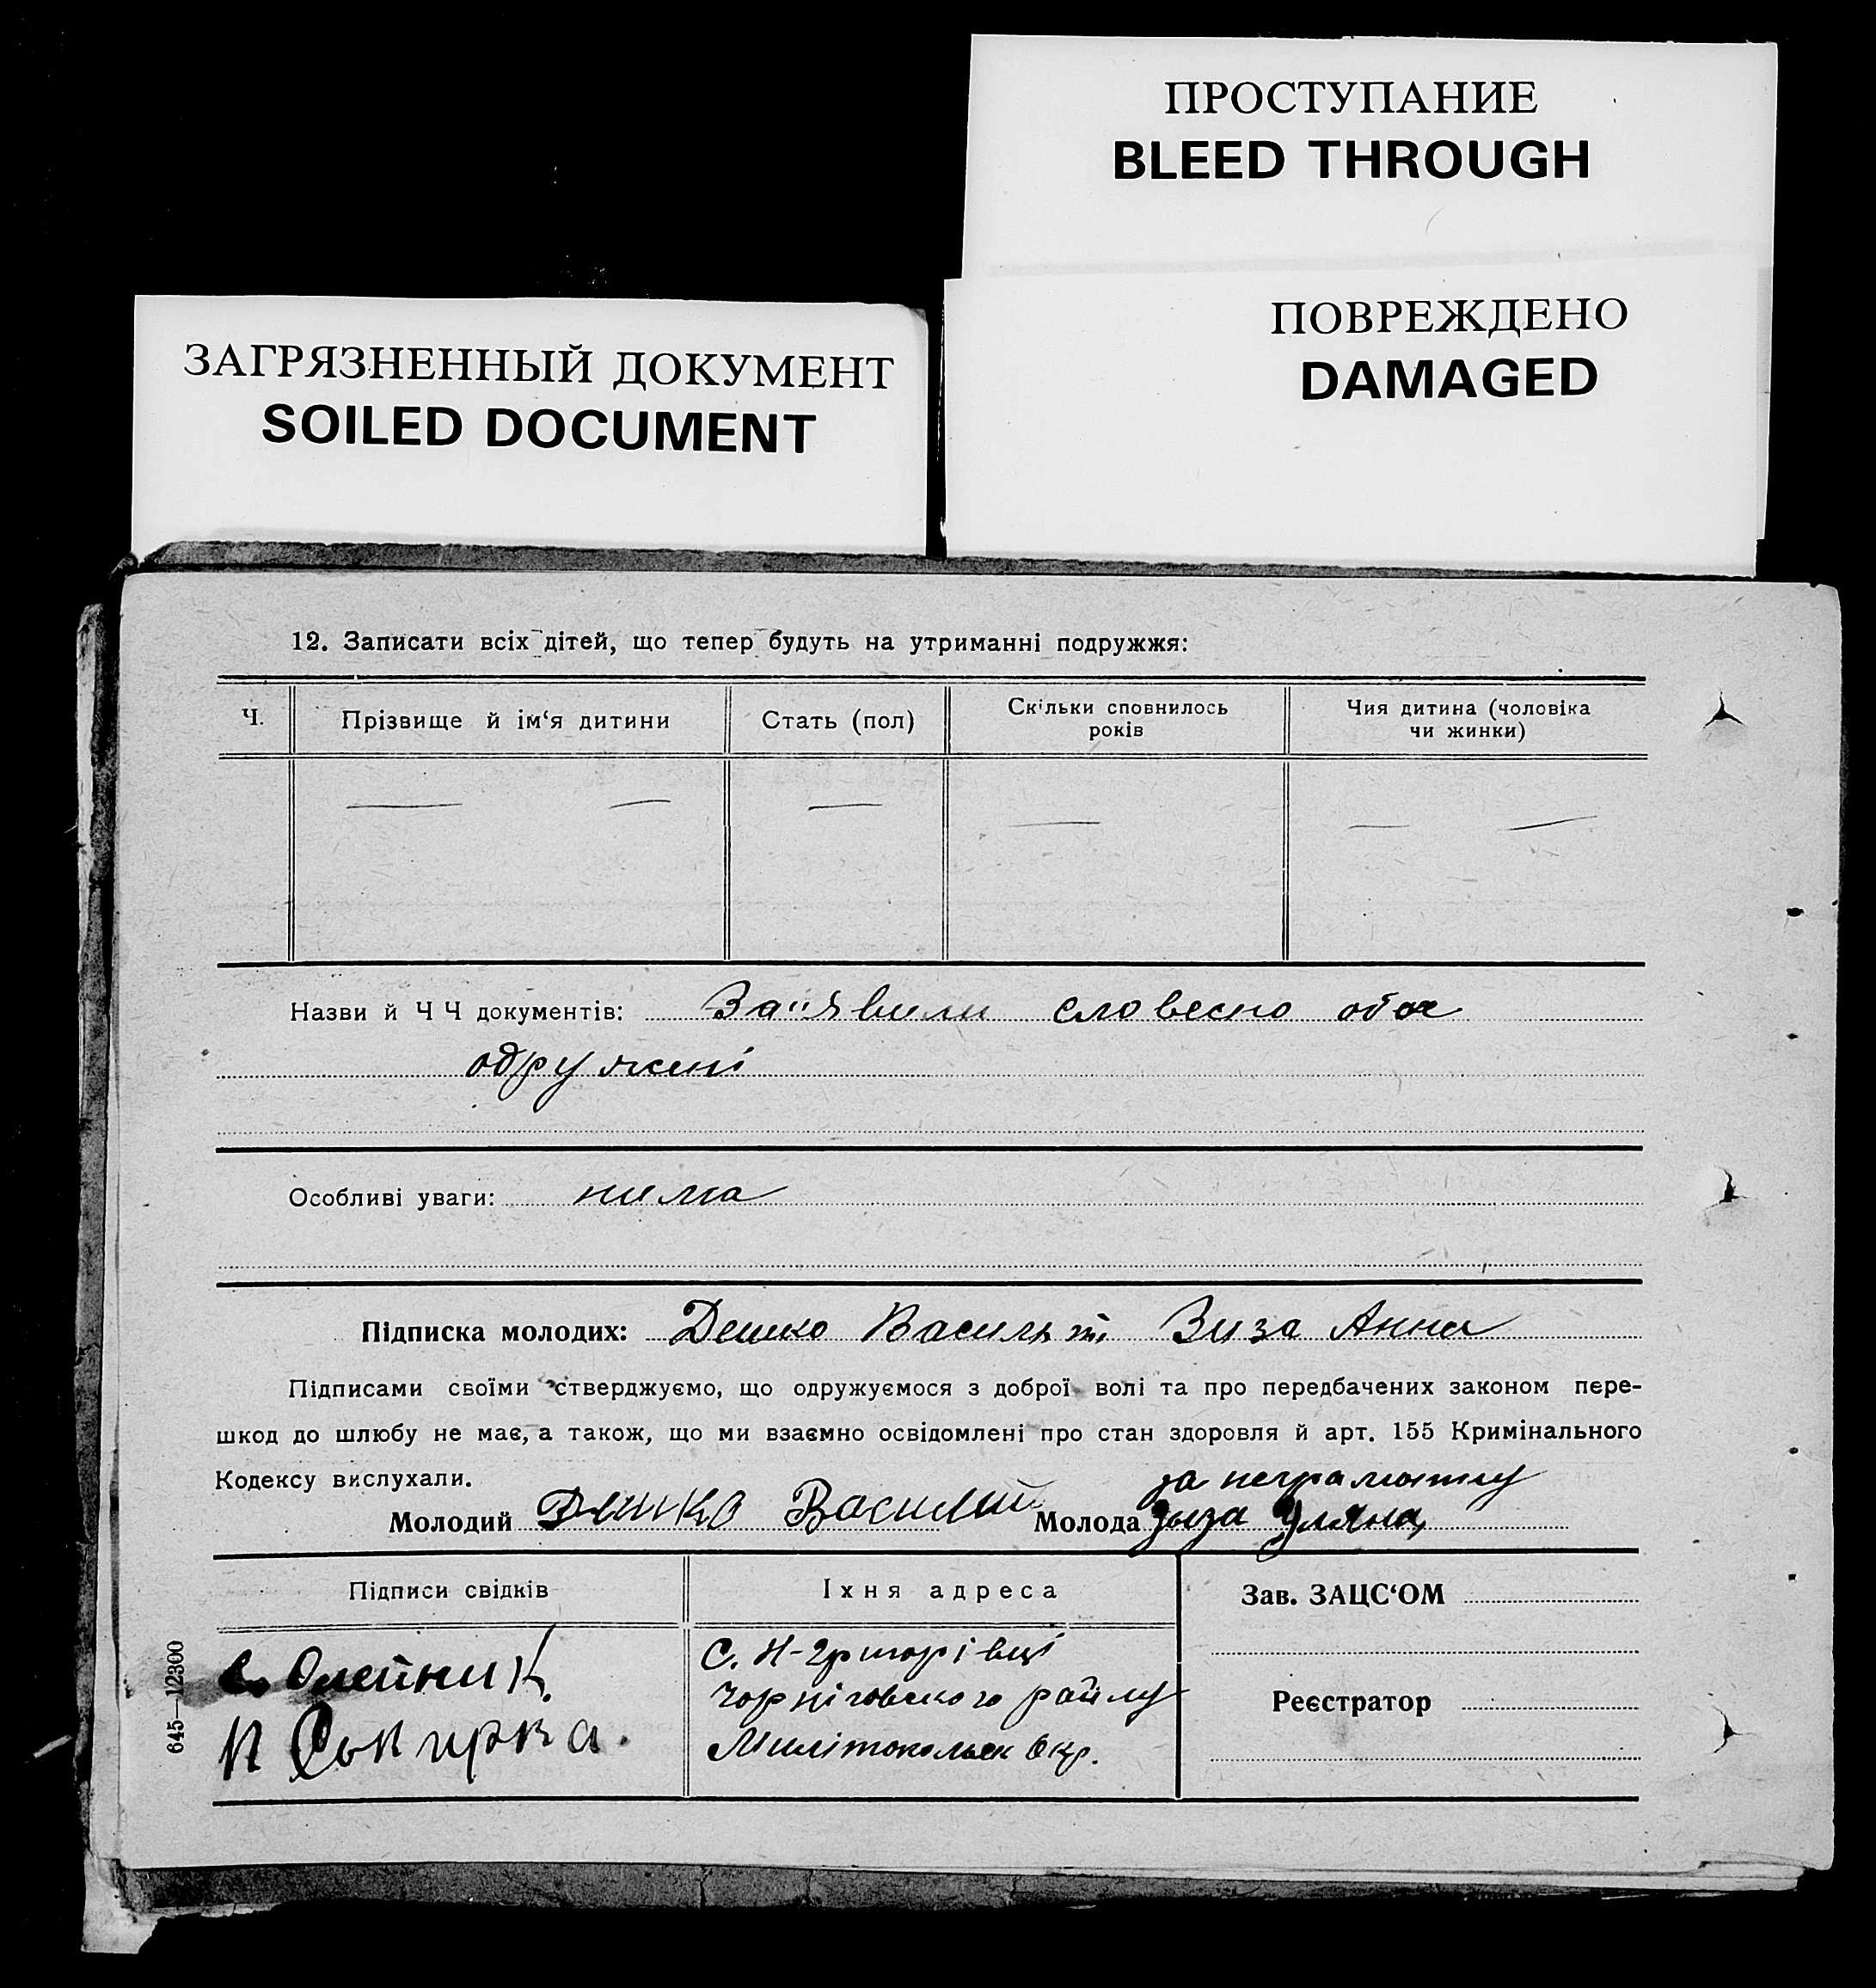 ПРОСТУПАНИЕ
BLEED THROUGH
ПОВРЕЖДЕНО
DAMAGED
ЗАГРЯЗНЕННЫЙ ДОКУМЕНТ
SOILED DOCUMENT
12. Записати всіх дітей, що тепер будуть на утриманні подружжя:
Ч.
Прізвище й ім‘я дитини
Стать (пол)
Скільки сповнилось
років
Чия дитина (чоловіка
чи жинки)
Назви й Ч Ч документів: За"явили словесно обоє
одружені
Особливі уваги: нима
Підписка молодих: Дешко Василь т. Зиза Анна
Підписами своїми стверджуємо, що одружуємося з доброї волі та про передбачених законом пере-
шкод до шлюбу не має, а також, що ми взаємно освідомлені про стан здоровля й арт. 155 Кримінального
Кодексу вислухали.
за неграмотну
Молодий Дешко Василий Молода Зыза Уляна
Підписи свідків
Іхня адреса
Зав. ЗАЦС‘ОМ
Олейник
С. Н-Григорівці
Чорніговского району
Реєстратор
П Сокирка.
Милітопольск Окр.
645—12300